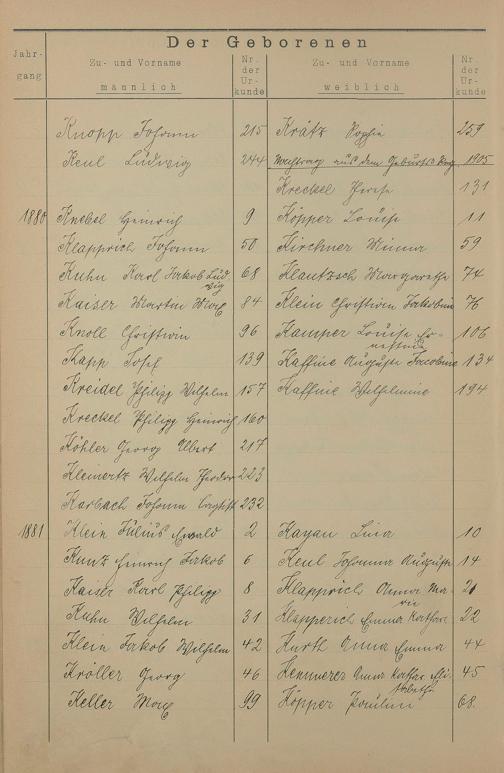 Der Geborenen
Jahr-
gang
Zu- und Vorname
männlich
Nr.
der
Ur-
kunde
Zu- und Vorname
weiblich
Nr.
der
Ur-
kunde
Knopp Johann 215 Krätz Sophie 259
Keul Ludwig 244 Nachtrag aus dem Geburts Reg 1905
Kreckel Therese 131
1880 Knebel Heinrich 9 Köpper Louise 11
Klapprich Johann 50 Kirchner Minna 59
Kuhn Karl Jakob Lud- 68 Klautzsch Margarethe 74
wig
Kaiser Martin Max 84 Klein Christian Jakobine 76
Knoll Christian 96 Kamper Louise Er- 106
nestine
Kapp Josef 139 Kaffine Auguste Jacobine 134
Kreidel Philipp Wilhelm 157 Kaffine Wilhelmine 194
Kreckel Philipp Heinrich 160
Köhler Georg Albert 217
Kleinertz Wilhelm Theodor 223
Karbach Johann Baptist 232
1881 Klein Julius Ewald 2 Kayan Lina 10
Kunz Heinrich Jakob 6 Keul Johanna Auguste 14
Kaiser Karl Philipp 8 Klapprich Anna Ma- 21
rie
Kuhn Wilhelm 31 Klapperich Emma Kathar. 22
Klein Jakob Wilhelm 42 Kurth Anna Emma 44
Kröller Georg 46 Kemmerer Anna Kathar. Eli- 45
sabetha
Keller Max 99 Köpper Pauline 68